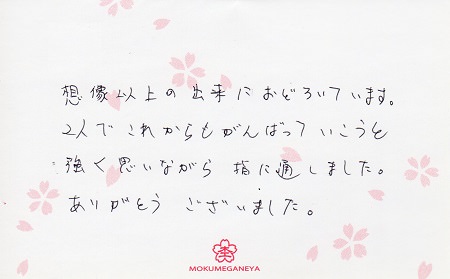 想像以上の出来におどろいています。
2人でこれからもがんばっていこうと
強く思いながら指に通しました。
ありがとうございました。
MOKUMEGANEYA